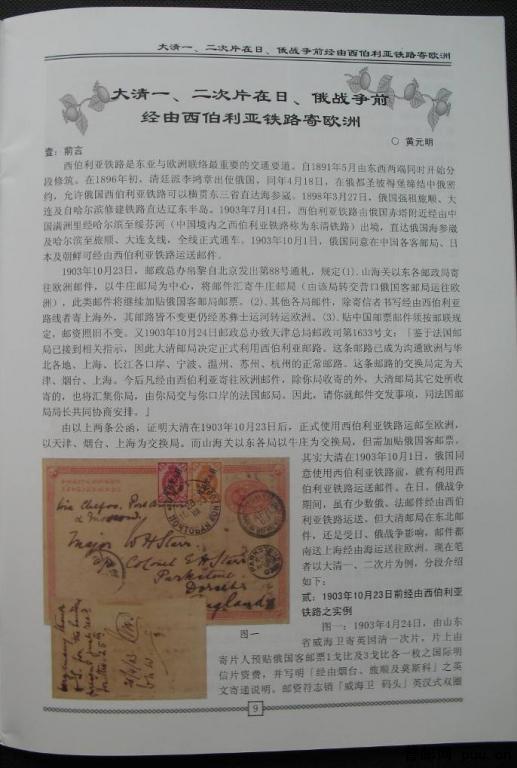 大清一、二次片在日、俄战争前经由西伯利亚铁路寄欧洲
大清一、二次片在日、俄战争前
经由西伯利亚铁路寄欧洲
○ 黄元明
壹：前言
西伯利亚铁路是东亚与欧洲联络最重要的交通要道。自1891年5月由东西两端同时开始分
段修筑。在1896年初，清廷派李鸿章出使俄国，同年4月18日，在俄都圣彼得堡缔结中俄密
约，允许俄国西伯利亚铁路可以横贯东三省直达海参崴。1898年3月27日，俄国强租旅顺、大
连及自哈尔滨修建铁路直达辽东半岛。1903年7月14日，西伯利亚铁路由俄国赤塔附近经由中
国满洲里经哈尔滨至绥芬河（中国境内之西伯利亚铁路称为东清铁路）出境，直达俄国海参崴
及哈尔滨至旅顺、大连支线，全线正式通车。1903年10月1日，俄国同意在中国各客邮局、日
本及朝鲜可经由西伯利亚铁路运送邮件。
1903年10月23日，邮政总办帛黎自北京发出第88号通札，规定(1).山海关以东各邮政局寄
往欧洲邮件，以牛庄邮局为中心，将邮件汇寄牛庄邮局（由该局转交营口俄国客邮局运往欧
洲），此类邮件将继续加贴俄国客邮局邮票。(2).其他各局邮件，除寄信者书写经由西伯利亚
路线者寄上海外，其邮路皆不变更仍经苏彝士运河转运欧洲、(3).贴中国邮票邮件须按邮联规
定，邮资照旧不变。又1903年10月24日邮政总办致天津总局邮政司第1633号文：「鉴于法国邮
局已接到相关指示，因此大清邮局决定正式利用西伯利亚邮路。这条邮路已成为沟通欧洲与华
北各地、上海、长江各口岸、宁波、温州、苏州、杭州的正常邮路。这条邮路的交换局定为天
津、烟台、上海。今后凡经由西伯利亚寄往欧洲邮件，除你局收寄的外，大清邮局其它处所收
寄的，也将汇集你局，由你局交与你口岸的法国邮局。因此，请你就邮件交发事项，同法国邮
局局长共同协商安排。」
由以上两条公函，证明大清在1903年10月23日后，正式使用西伯利亚铁路运邮至欧洲，
以天津、烟台、上海为交换局。而山海关以东各局以牛庄为交换局，但需加贴俄国客邮票。
其实大清在1903年10月1日，俄国同
意使用西伯利亚铁路前，就有利用西
伯利亚铁路运送邮件。在日、俄战争
期间，虽有少数俄、法邮件经由西伯
利亚铁路运送，但大清邮局在东北邮
件，还是受日、俄战争影响，邮件都
南送上海经由海运送往欧洲。现在笔
者以大清一、二次片为例，分段介绍
如下：
贰：1903年10月23日前经由西伯利亚
铁路之实例
图一：1903年4月24日，由山东
省威海卫寄英国清一次片，片上由
寄片人预贴俄国客邮票1戈比及3戈比各一枚之国际明
信片资费，并写明「经由烟台、旅顺及莫斯科」之英
文寄递说明。邮资符志销「威海卫 码头」英汉式双圈
via Chefoo, Port
Major W H Starr
Colonel E H Starr
Parkstone
Dorset
England
图一
9